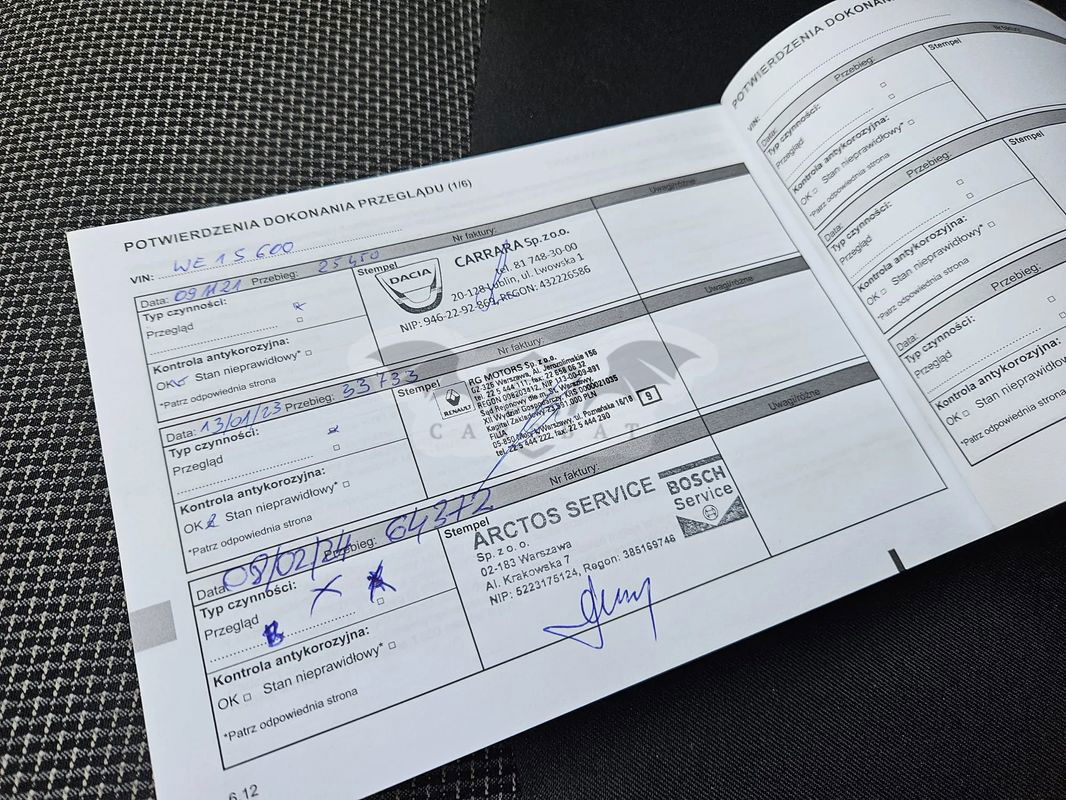 POTWIERDZENIA DOKONANIA PRZEGLĄDU (1/6)
VIN: WE 15 600
Data: 09 11 21 Przebieg: 25 450 Nr faktury: Uwagi/różne
Typ czynności:
Przegląd
Kontrola antykorozyjna:
OK Stan nieprawidłowy*
*Patrz odpowiednia strona
Stempel
DACIA
CARRARA Sp. z o.o.
tel. 81 748-30-00
20-128 Lublin, ul. Lwowska 1
NIP: 946-22-92-869, REGON: 43226586
Data: 13/01/23 Przebieg: 33 733 Nr faktury: Uwagi/różne
Typ czynności:
Przegląd
Kontrola antykorozyjna:
OK Stan nieprawidłowy*
*Patrz odpowiednia strona
Stempel
RENAULT
RG MOTORS Sp. z o.o.
02-326 Warszawa, Al. Jerozolimskie 156
tel. 22 5 444 111; fax: 22 658 06 32
Kapitał Zakładowy
FILIA
tel. 22 5 444 222, fax: 22 5 444 230
9
Data: 08/02/24 Przebieg: 64372 Nr faktury: Uwagi/różne
Typ czynności:
Przegląd
Kontrola antykorozyjna:
OK Stan nieprawidłowy*
*Patrz odpowiednia strona
Stempel
ARCTOS SERVICE
Sp. z o. o.
02-183 Warszawa
Al. Krakowska 7
NIP: 5223175124, Regon: 385169746
BOSCH
Service
6.12
POTWIERDZENIA DOKONANIA
VIN:
Data: Przebieg: Nr faktury
Typ czynności:
Przegląd
Kontrola antykorozyjna:
OK Stan nieprawidłowy*
*Patrz odpowiednia strona
Stempel
Data: Przebieg:
Typ czynności:
Przegląd
Kontrola antykorozyjna:
OK Stan nieprawidłowy*
*Patrz odpowiednia strona
Stempel
Data: Przebieg:
Typ czynności:
Przegląd
Kontrola antykorozyjna:
OK Stan nieprawidłowy*
*Patrz odpowiednia strona